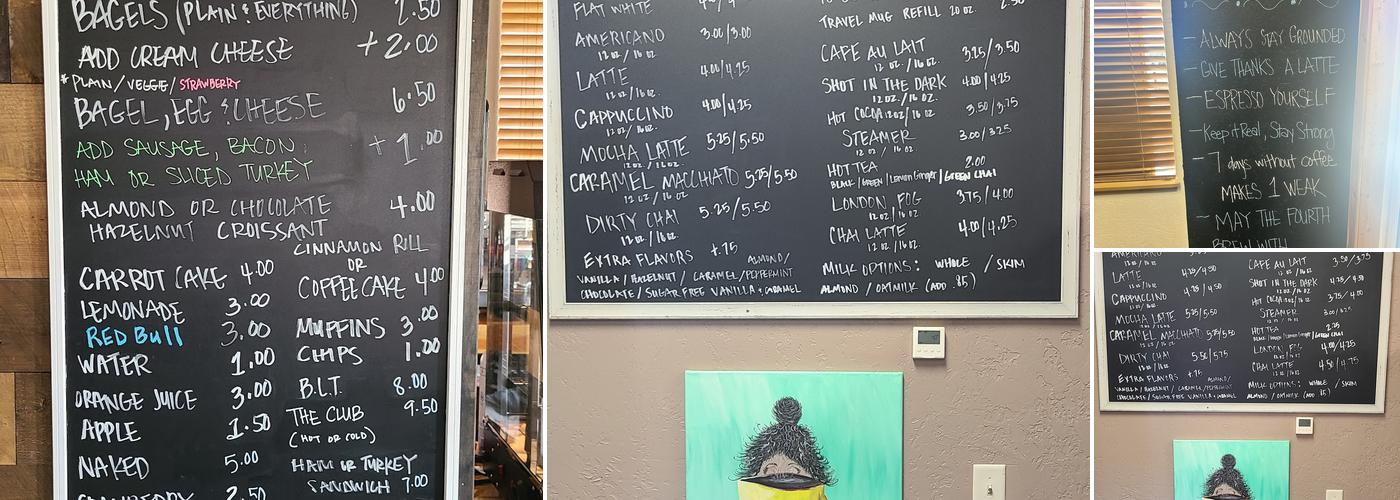 BAGELS (PLAIN & EVERYTHING) 2.50
ADD CREAM CHEESE +2.00
* PLAIN / VEGGIE / STRAWBERRY
BAGEL, EGG & CHEESE 6.50
ADD SAUSAGE, BACON, +1.00
HAM OR SLICED TURKEY
ALMOND OR CHOCOLATE 4.00
HAZELNUT CROISSANT
CARROT CAKE 4.00
LEMONADE 3.00
RED Bull 3.00
WATER 1.00
ORANGE JUICE 3.00
APPLE 1.50
NAKED 5.00
2.50
CINNAMON RILL
OR
COFFEE CAKE 4.00
MUFFINS 3.00
CHIPS 1.00
B.L.T. 8.00
THE CLUB 9.50
(HOT OR COLD)
HAM OR TURKEY
SANDWICH 7.00
FLAT WHITE
AMERICANO 3.00/3.00
12 OZ. / 16 OZ.
LATTE 4.00/4.25
12 OZ. / 16 OZ.
CAPPUCCINO 4.00/4.25
12 OZ. / 16 OZ.
MOCHA LATTE 5.25/5.50
12 OZ. / 16 OZ.
CARAMEL MACCHIATO 5.25/5.50
12 OZ. / 16 OZ.
DIRTY CHAI 5.25/5.50
12 OZ. / 16 OZ.
EXTRA FLAVORS +.75 ALMOND/
VANILLA / HAZELNUT / CARAMEL / PEPPERMINT
CHOCOLATE / SUGAR FREE VANILLA & CARAMEL
TRAVEL MUG REFILL 20 OZ. 2.50
CAFE AU LAIT 3.25/3.50
12 OZ. / 16 OZ.
SHOT IN THE DARK 4.00/4.25
12 OZ. / 16 OZ.
HOT COCOA 12 OZ / 16 OZ 3.50/3.75
STEAMER 3.00/3.25
12 OZ / 16 OZ
HOT TEA 2.00
BLACK / GREEN / Lemon Ginger / GREEN CHAI
LONDON FOG 3.75/4.00
12 OZ / 16 OZ.
CHAI LATTE 4.00/4.25
12 OZ / 16 OZ.
MILK OPTIONS: WHOLE / SKIM
ALMOND / OATMILK (ADD .85)
- ALWAYS STAY GROUNDED
- GIVE THANKS A LATTE
- ESPRESSO YOURSELF
- Keep it Real, Stay Strong
- 7 days without coffee
MAKES 1 WEAK
- MAY THE FOURTH
BREW WITH
AMERICANO
LATTE 4.25/4.50
12 OZ / 16 OZ
CAPPUCCINO 4.25/4.50
12 OZ / 16 OZ
MOCHA LATTE 5.25/5.50
12 OZ / 16 OZ
CARAMEL MACCHIATO 5.25/5.50
12 OZ / 16 OZ
DIRTY CHAI 5.50/5.75
12 OZ / 16 OZ
EXTRA FLAVORS +.75 ALMOND/
VANILLA / HAZELNUT / CARAMEL / PEPPERMINT
CHOCOLATE / SUGAR FREE VANILLA & CARAMEL
CAFE AU LAIT 3.50/3.75
12 OZ / 16 OZ
SHOT IN THE DARK 4.25/4.50
12 OZ / 16 OZ
HOT COCOA 12 OZ / 16 OZ 3.75/4.00
STEAMER
12 OZ / 16 OZ
HOT TEA 2.25
BLACK / GREEN / Lemon Ginger / GREEN CHAI
LONDON FOG 4.00/4.25
12 OZ / 16 OZ
CHAI LATTE 4.50/4.75
12 OZ / 16 OZ
MILK OPTIONS: WHOLE / SKIM
ALMOND / OATMILK (ADD .85)